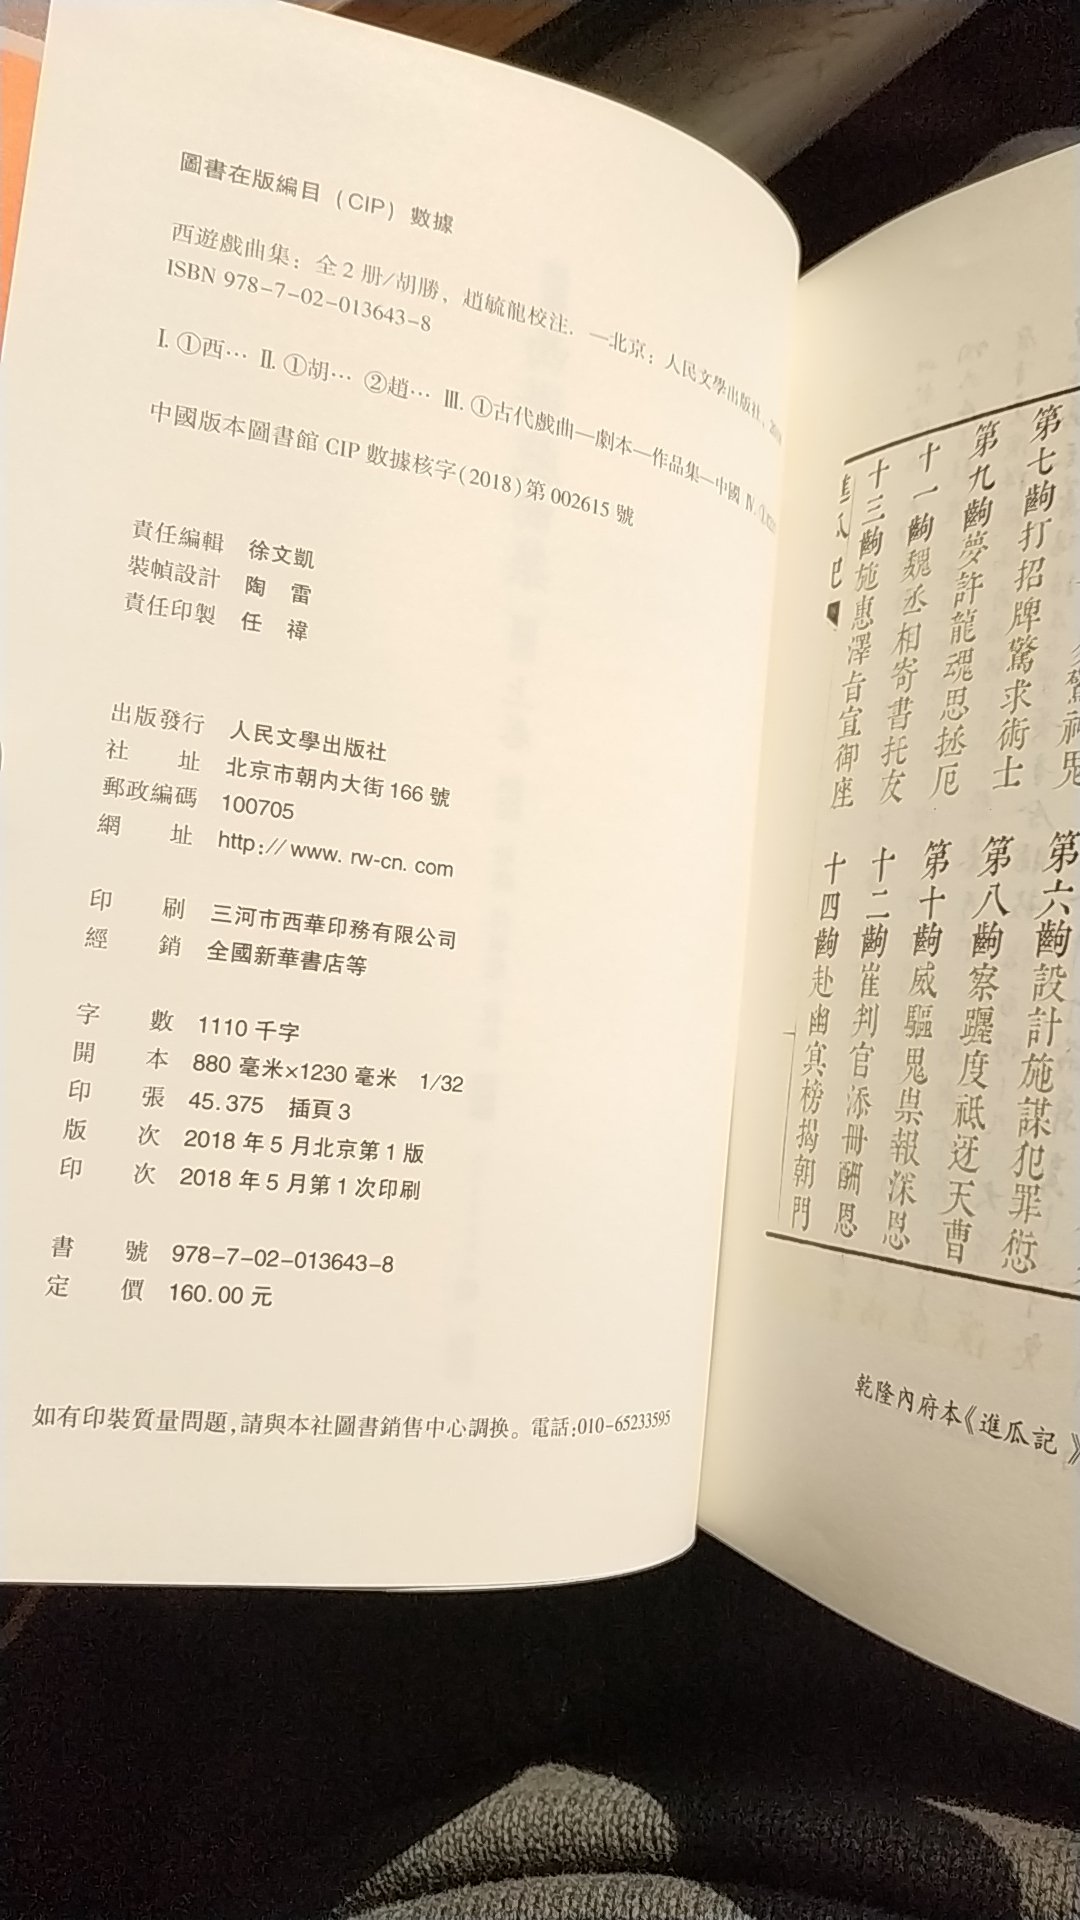 圖書在版編目（CIP）數據
西遊戲曲集：全2册/胡勝，趙毓龍校注．—北京：人民文學出版社，
ISBN 978-7-02-013643-8
Ⅰ.①西… Ⅱ.①胡… ②趙… Ⅲ.①古代戲曲—劇本—作品集—中國 Ⅳ.
中國版本圖書館 CIP 數據核字（2018）第 002615 號
責任編輯 徐文凱
裝幀設計 陶 雷
責任印製 任 禕
出版發行 人民文學出版社
社 址 北京市朝内大街 166 號
郵政編碼 100705
網 址 http://www.rw-cn.com
印 刷 三河市西華印務有限公司
經 銷 全國新華書店等
字 數 1110 千字
開 本 880 毫米×1230 毫米 1/32
印 張 45.375 插頁 3
版 次 2018 年 5 月北京第 1 版
印 次 2018 年 5 月第 1 次印刷
書 號 978-7-02-013643-8
定 價 160.00 元
如有印裝質量問題，請與本社圖書銷售中心調换。電話：010-65233595
第六齣設計施謀犯罪愆
第七齣打招牌驚求術士
第八齣察躔度祗迓天曹
第九齣夢許龍魂思拯厄
第十齣威驅鬼祟報深恩
十一齣魏丞相寄書托友
十二齣崔判官添册酬恩
十三齣施惠澤旨宣御座
十四齣赴幽冥榜揭朝門
乾隆内府本《進瓜記》